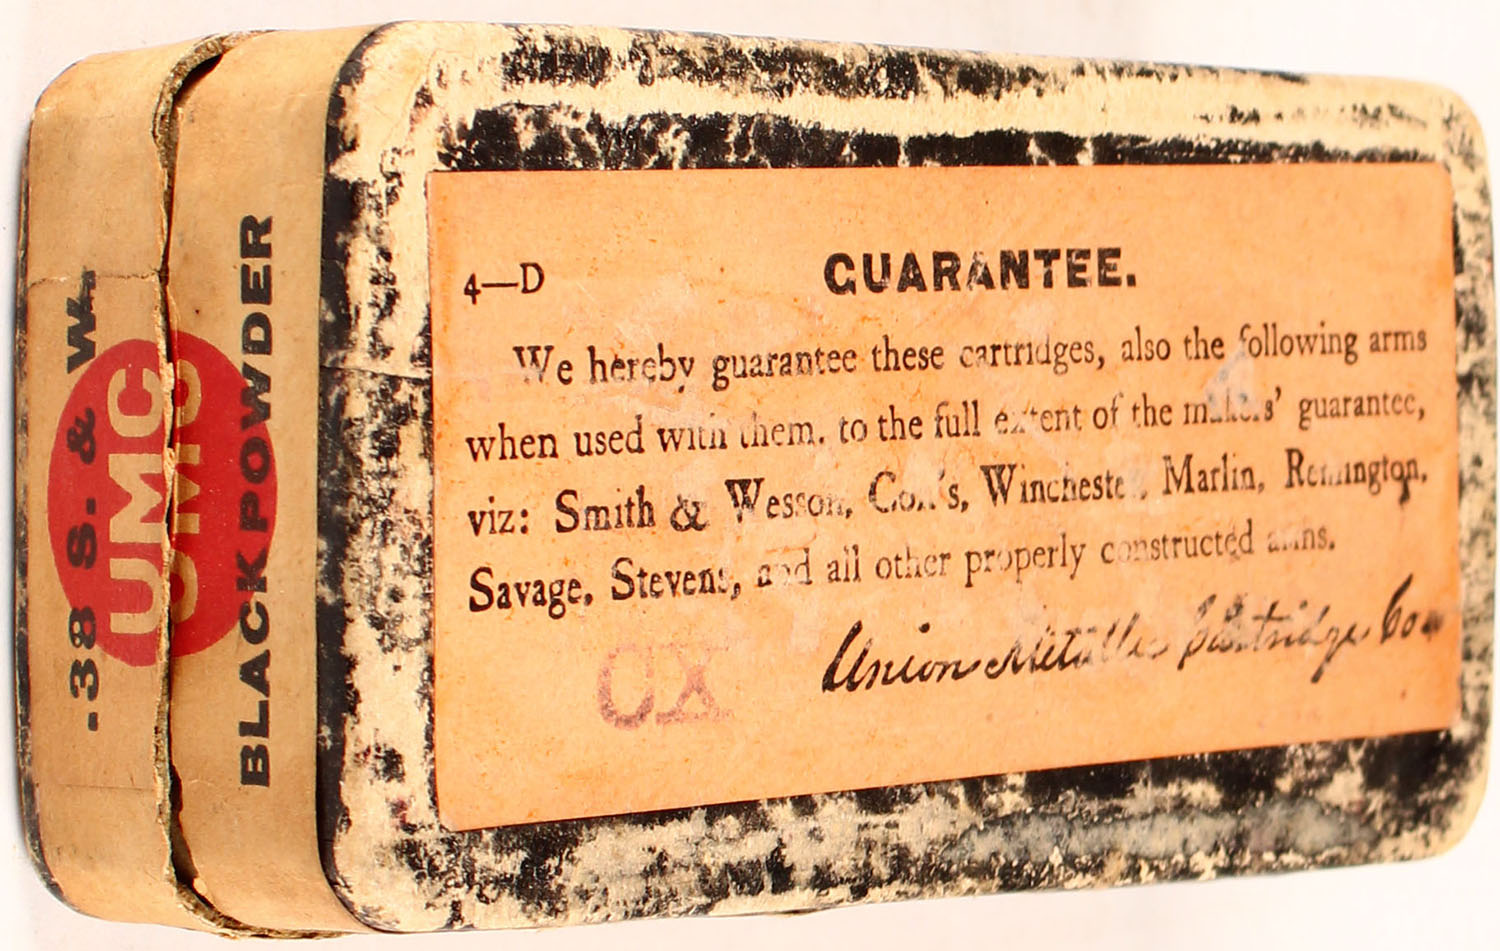 .38 S. & W.
UMC
UMC
BLACK POWDER
4—D
GUARANTEE.
We hereby guarantee these cartridges, also the following arms
when used with them. to the full extent of the makers' guarantee,
viz: Smith & Wesson, Colt's, Winchester, Marlin, Remington,
Savage, Stevens, and all other properly constructed arms.
Union Metallic Cartridge Co
CX